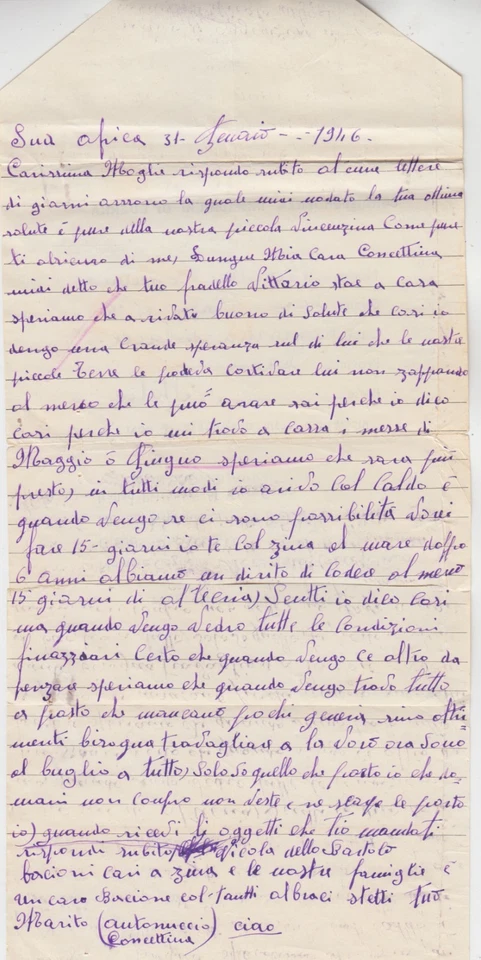 Sud africa 31- Genaio - - 1946 -
Carissima Moglie rispondo subito al cuna lettere
di giarni arrono la quale mi ai nodato la tua ottima
salute è pure della nostra piccola Vincenzina Come pure
ti abricuro di me, Dunque Mia Cara Concettina
mi ai detto che tuo fradello Vittario stae a casa
speriamo che a rivato buono di salute che cosi io
dengo una Grande speranza sul di lui che le nostre
piccole Terre le podeva cortivare lui non zappando
al meno che le può arare sai perche io dico
cosi perche io mi trovo a cassa i messe di
Maggio ò Giugno speriamo che sara piu
presto, in tutti modi io arivo col Caldo è
quando vengo se ci sono possibilità vovi
fare 15- giarni io te col zina al mare doppo
6 anni abbiamo un dirito di Codere al meno
15 giarni di Sentti io dico Cosi
ma quando vengo Vedro tutte le Condizioni
finazzari Certo che quando vengo ce altro da
penzare speriamo che quando vengo trovo tutto
a posto che mancano pochi generi sino altri=
menti bisogna travagliare a la Voro ora sono
al buglio a tutto, Solo so quello che posto io che do=
mani non compro non Veste, ne scarpe le porto
io) quando ricevi li oggetti che tio mandati
rispondi subito, Nicola dello Bartolo
bacioni cari a zina e le nostre famiglie è
un caro Bacione col tantti abbraci stetti tuo
Marito (antonuccio) ciao
Concettina